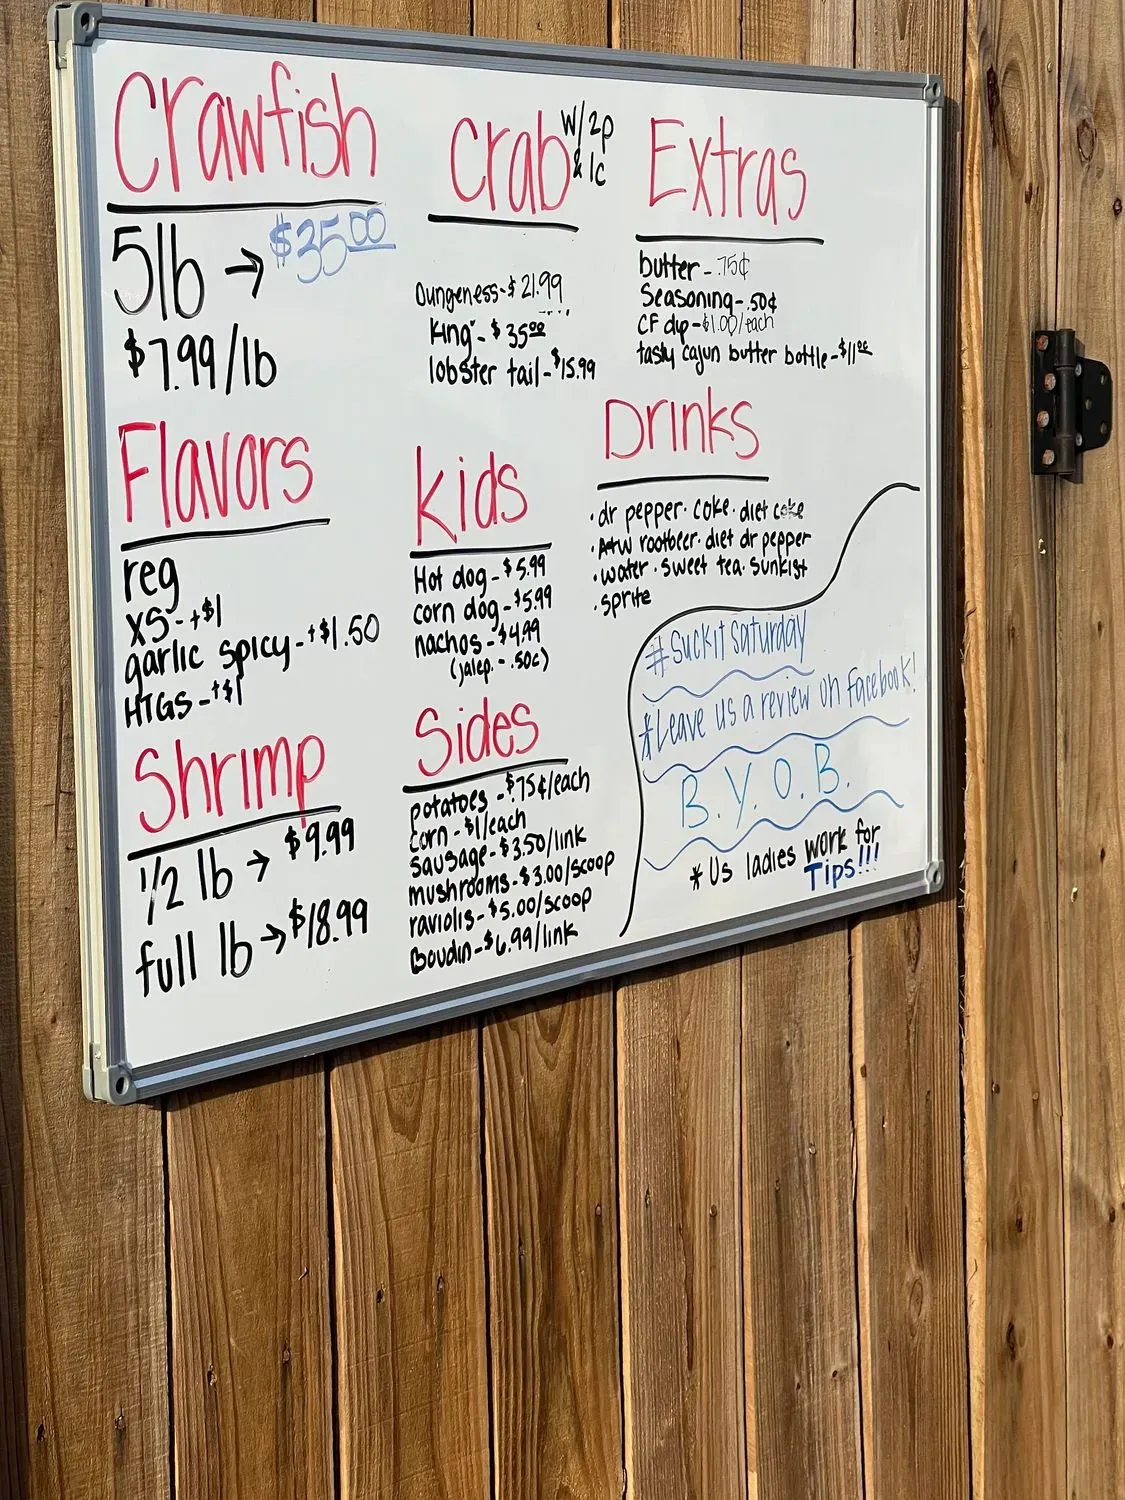 Crawfish
5lb → $35.00
$7.99/lb
Flavors
reg
XS - +$1
garlic spicy - +$1.50
HTGS - +$1
Shrimp
1/2 lb → $9.99
full lb → $18.99
Crab w/ 2p & 1c
Dungeness - $21.99
King - $35.00
lobster tail - $15.99
Kids
Hot dog - $5.99
corn dog - $5.99
nachos - $4.99
(jalep. - .50¢)
Sides
potatoes - $.75¢/each
corn - $1/each
sausage - $3.50/link
mushrooms - $3.00/scoop
raviolis - $5.00/scoop
Boudin - $6.99/link
Extras
butter - .75¢
Seasoning - .50¢
CF dip - $1.00/each
tasty cajun butter bottle - $11.00
Drinks
· dr pepper · coke · diet coke
· A+W rootbeer · diet dr pepper
· water · sweet tea · sunkist
· sprite
#Suckit Saturday
*Leave us a review on Facebook!
B.Y.O.B.
* Us ladies work for
Tips!!!